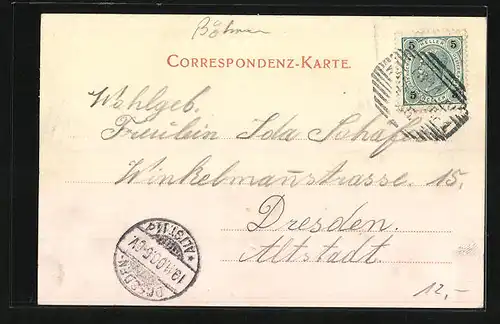 Böhmen
CORRESPONDENZ-KARTE.
5 HELLER 5
5 5
Wohlgeb.
Fräulein Ida Schäfer
Winkelmannstrasse. 15.
Dresden.
Altstadt.
DRESDEN
ALTST.
12,-